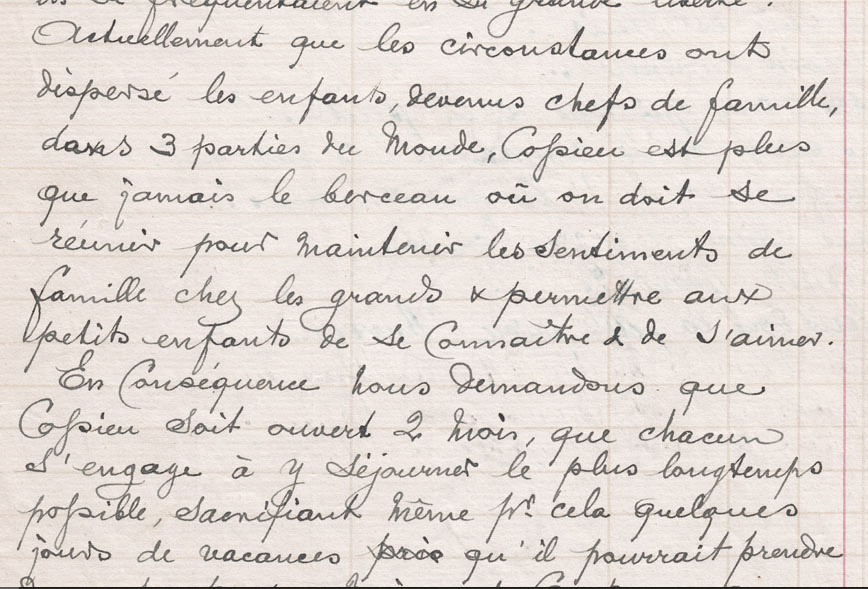 se fréquentaient en si grande liberté.
Actuellement que les circonstances ont
dispersé les enfants, devenus chefs de famille,
dans 3 parties du Monde, Cossieu est plus
que jamais le berceau où on doit se
réunir pour maintenir les sentiments de
famille chez les grands & permettre aux
petits enfants de se Connaître & de s'aimer.
En Conséquence nous demandons que
Cossieu soit ouvert 2 mois, que chacun
s'engage à y séjourner le plus longtemps
possible, sacrifiant même pr cela quelques
jours de vacances pris qu'il pourrait prendre